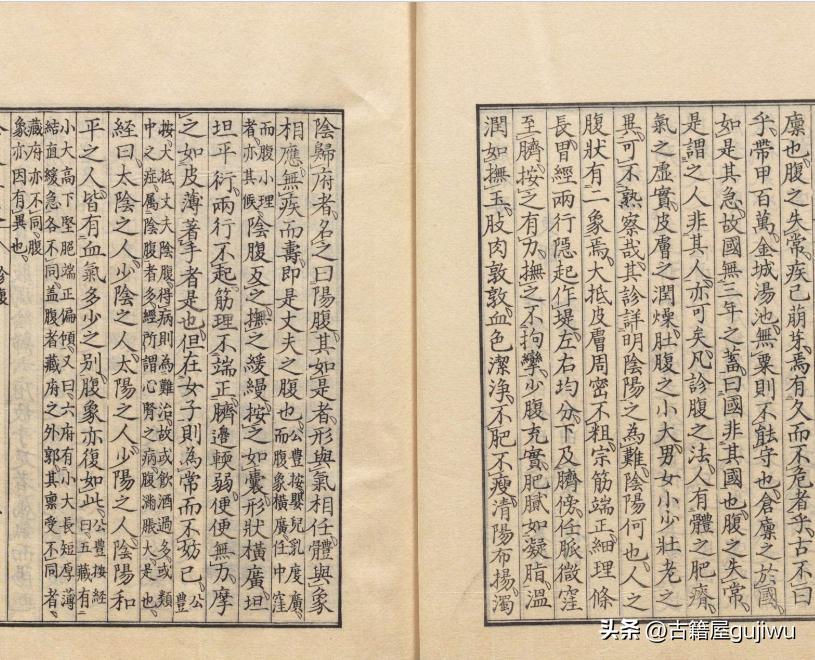 廩也腹之失常疾已萠芽焉有久而不危者乎古不曰
乎帶甲百萬金城湯池無粟則不能守也倉廩之於國
如是其急故國無三年之蓄曰國非其國也腹之失常
是謂之人非其人亦可矣凡診腹之法人有體之肥瘠
氣之虛實皮膚之潤燥肚腹之小大男女小少壯老之
異可不熟察哉其診詳明陰陽之為難陰陽何也人之
腹狀有二象焉大抵皮膚周密不粗宗筋端正細理條
長胃經兩行隱起作堤左右均分下及臍傍任脈微窪
至臍按之有力撫之不拘攣少腹充實肥膩如凝脂溫
潤如撫玉肢肉敦敦血色潔淨不肥不瘦清陽布揚濁
陰歸府者名之曰陽腹其如是者形與氣相任體與象
相應無疾而壽即是丈夫之腹也公豊按嬰兒乳度廣而腹象橫廣任中窪
者亦其候而腹小理陰腹反之撫之緩縵按之如囊形狀橫廣坦
坦平行兩行不起筋理不端正臍邊輭弱便便無力摩
之如皮薄著手者是也但在女子則為常而不妨已公豊
按大抵丈夫陰腹得病則為難治故或飲酒過多或類
中之症属陰腹者多經所謂心腎之病腹滿脹大是也
經曰太陰之人少陰之人太陽之人少陽之人陰陽和
平之人皆有血氣多少之别腹象亦復如此公豊按經曰五藏有
小大高下堅脆端正偏傾又曰六府有小大長短厚薄
結直緩急各不同盖腹者藏府之外郭其禀受不同者
藏府亦不同腹
象亦因有異也
头条 @古籍屋gujiwu